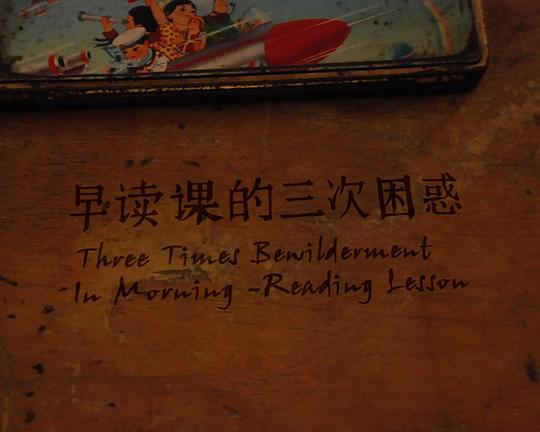 早读课的三次困惑
Three Times Bewilderment
In Morning -Reading Lesson